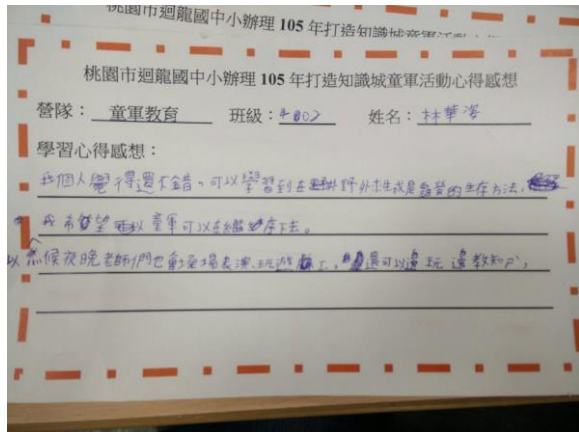 桃園市迴龍國中小辦理 105 年打造知識城童軍活動
桃園市迴龍國中小辦理 105 年打造知識城童軍活動心得感想
營隊：童軍教育 班級： 姓名：林華
學習心得感想：
我個人覺得還不錯。可以學習到在野外求生或是露營的生存方法，
我希望童軍可以在繼存下去。
以候夜晚老師們也會登場表演、玩遊戲，還可以邊玩邊教知